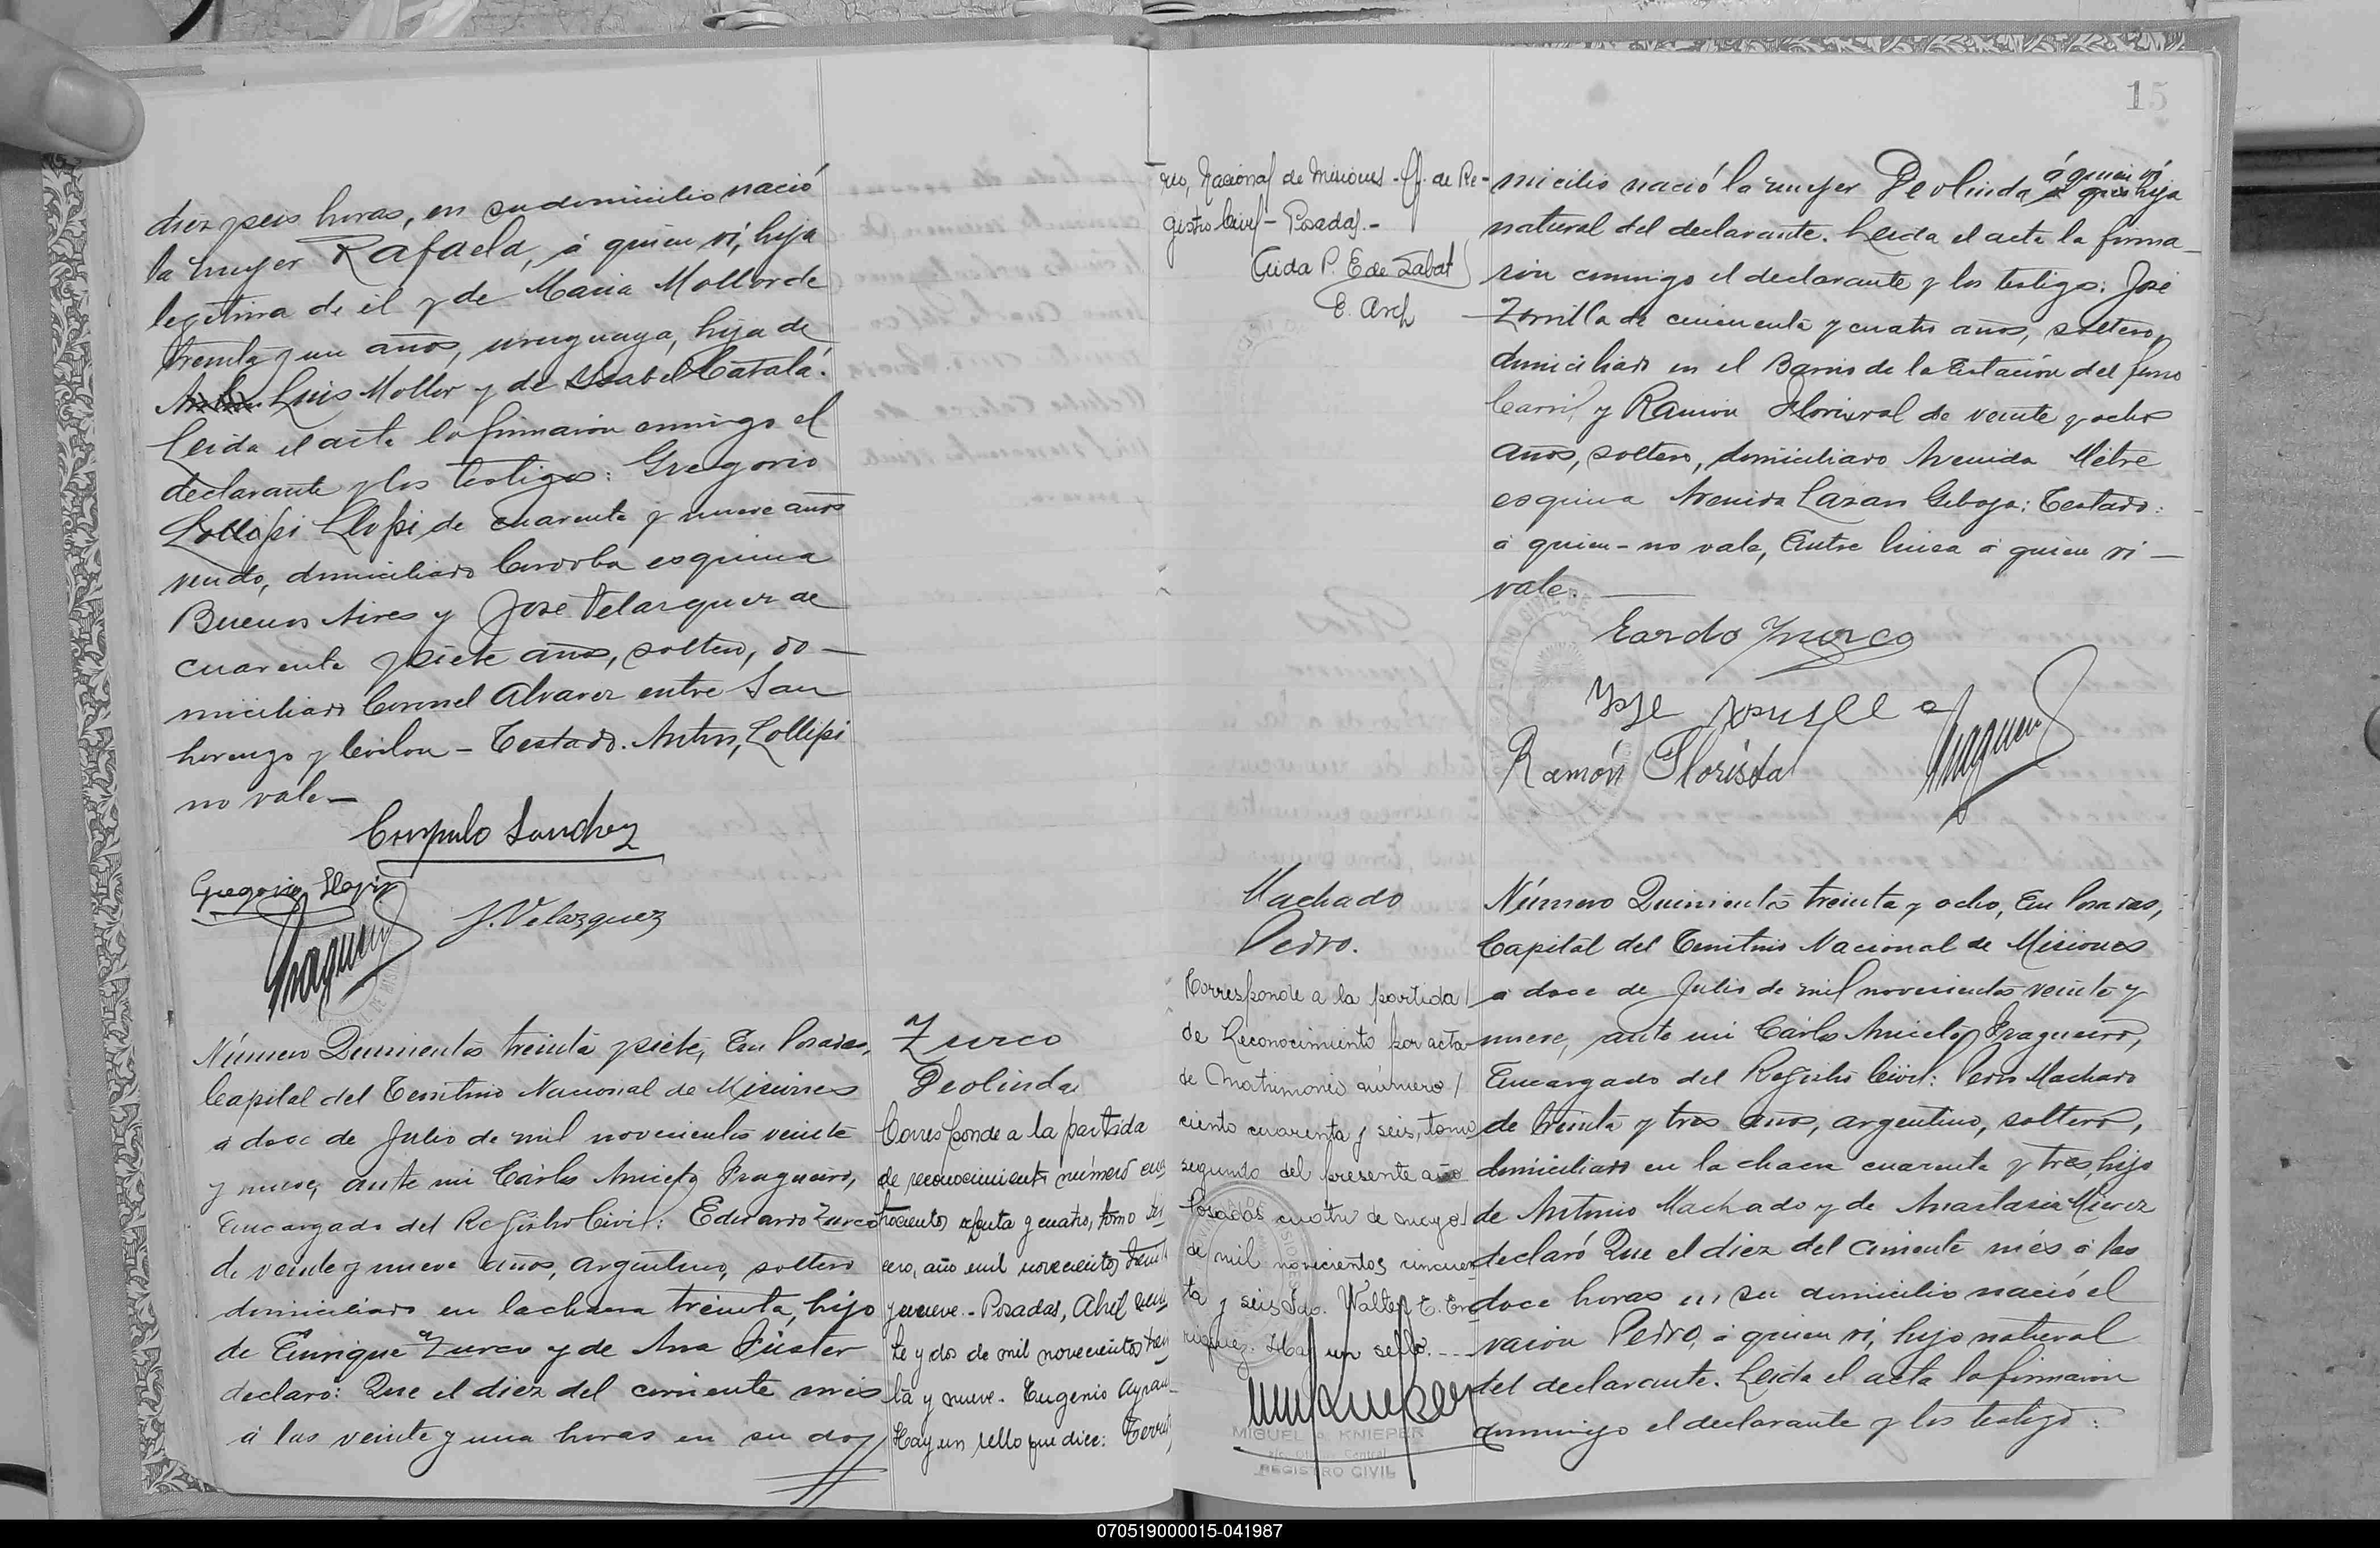 diez y seis horas, en su domicilio nació
la mujer Rafaela, á quien ví, hija
legítima de él y de Maria Moller de
treinta y un años, uruguaya, hija de
Luis Moller y de Isabel Catalá.
Leida el acta la firmaron conmigo el
declarante y los testigos: Gregorio
Lollipi Llopi de cuarenta y nueve años
viudo, domiciliado Cordoba esquina
Buenos Aires y José Velazquez de
cuarenta y siete años, soltero, do-
miciliado Coronel Alvarez entre San
Lorenzo y Colon - Testado. Anton, Lollipi
no vale -
Crispulo Sanchez
Gregorio Llopis
J. Velazquez
Número Quinientos treinta y siete, En Posadas,
Capital del Territorio Nacional de Misiones
á doce de Julio de mil novecientos veinte
y nueve, ante mi Cárlos Aniceto Fragueiro,
Encargado del Registro Civil: Eduardo Zurco
de veinte y nueve años, argentino, soltero
domiciliado en la chacra treinta, hijo
de Enrique Zurco y de Ana
declaró: Que el diez del corriente mes
á las veinte y una horas en su do
Zurco
Deolinda
Corresponde a la partida
de reconocimiento número cua
trocientos setenta y cuatro, tomo ter
cero, año mil novecientos treinta
y nueve. - Posadas, Abril vein
te y dos de mil novecientos trein
ta y nueve. Eugenio
Hay un sello que dice: Territo
rio, Nacional de Misiones - Of. de Re-
gistro Civil - Posadas. -
Aida P. E de Zabat
E. Arch
15
micilio nació la mujer Deolinda á quien ví hija
natural del declarante. Leida el acta la firma-
ron conmigo el declarante y los testigos: José
Zorrilla de cincuenta y cuatro años, soltero,
domiciliado en el Barrio de la Estación del ferro
Carril y Ramón Florisval de veinte y ocho
años, soltero, domiciliado Avenida Mitre
esquina Avenida Lazaro Geboja: Testado:
á quien - no vale, Entre linea á quien ví -
vale.
Eardo Zurco
Ramón Florisval
Machado
Pedro.
Corresponde a la partida
de Reconocimiento por acta
de Matrimonio número
ciento cuarenta y seis, tomo
segundo del presente año
Posadas cuatro de mayo
de mil novecientos cincuen
ta y seis Fdo. Walter E. En
riquez. Hay un sello. ---
MIGUEL A. KNIEPER
Oficina Central
REGISTRO CIVIL
Número Quinientos treinta y ocho, En Posadas,
Capital del Territorio Nacional de Misiones
á doce de Julio de mil novecientos veinte y
nueve, ante mi Cárlos Aniceto Fragueiro,
Encargado del Registro Civil: Pedro Machado
de treinta y tres años, argentino, soltero,
domiciliado en la chacra cuarenta y tres, hijo
de Antonio Machado y de Anastasia Mierez
declaró Que el diez del corriente més á las
doce horas en su domicilio nació el
varon Pedro, á quien ví, hijo natural
del declarante. Leida el acta la firmaron
conmigo el declarante y los testigos:
070519000015-041987